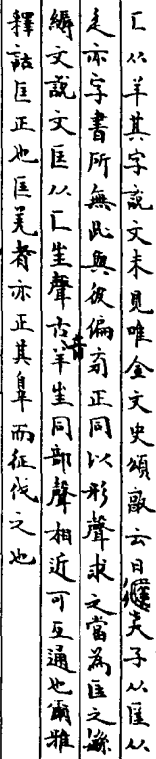 匚从羊其字說文未見唯金文史頌敦云日𨖍天子从匡从
辵亦字書所無此與彼偏㫄正同以形聲求之當為匡之繇
緐文說文匡从匚㞷聲古音羊㞷同部聲相近可互通也爾雅
釋詁匡正也匡羌者亦正其辠而征伐之也